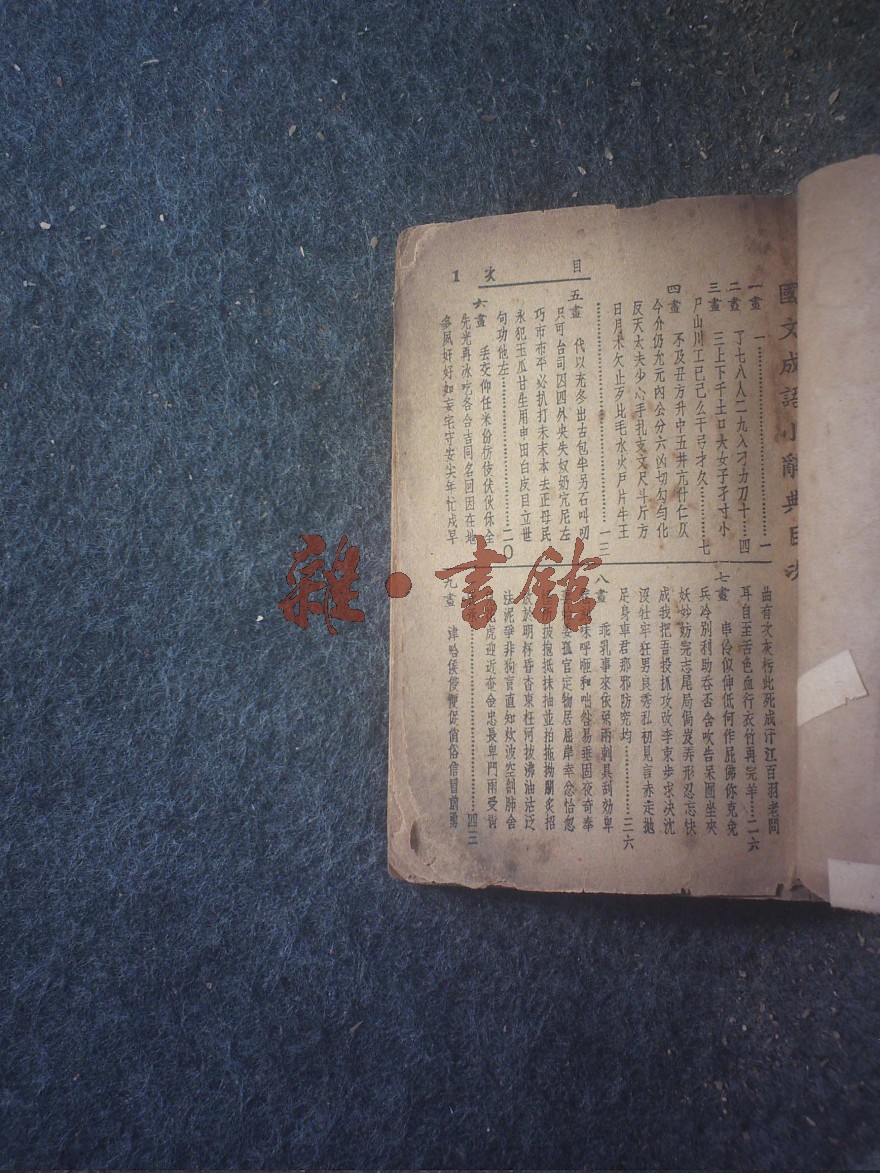 國文成語小辭典目次
目 次 1
一畫 一……一
二畫 丁七八人二九入刁力刀十…四
三畫 三上下千土口大女子孑寸小
尸山川工已己么干弓才久……七
四畫 不及丑方升中五井亢什仁仄
今外仍允元內公分六凶切勾勻化
反天太夫少心手扎支文尺斗斤方
日月木欠止歹比毛水火戶片牛王
……一三
五畫 代以充冬出古包半另石叫叨
只可台司囚四外央失奴奶宂尼左
巧市布平必扒打未末本去正母民
永犯玉瓜甘生用申田白皮目立世
句功他左……二〇
六畫 丟交仰任米份仿伎伏伙休全
先光再冰吃各合吉同名回因在地
多夙奸好如妄宅守安尖年忙戍早
曲有次灰朽此死成汗江百羽老問
耳自至舌色血行衣竹再完羊…二六
七畫 串伶似伸低何作屁佛你克免
兵冷別利助吞否含吹告呆囤坐夾
妖妙妨完志尾局侷岌弄形忍忘快
成我把吾投抓攻改李束步求決沈
沒牡牢狂男良秀私初見言赤走拋
足身車君那邪防究均……三六
八畫 乖乳事來依兔兩刺具刮効卑
味呼咂和咄咎易垂固夜奇奉
妾孤官定物居屈岸幸念怡忽
披抱抵抹抽並拍拖拗關炙招
於明杯昏杳東枉河披沸油沽泛
法泥爭非狗盲直知炊波空刻肺舍
虎迎近奄金忠長卑門雨受肯
……四三
九畫 津哈侯侵便促俏俗信冒前勇
雜·書館